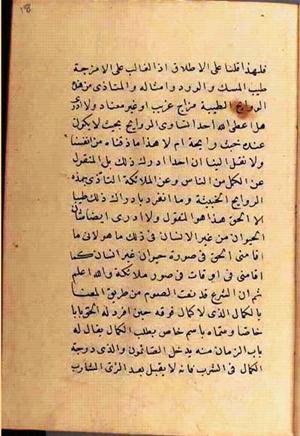 فلهذا قلنا على الاطلاق اذ الغالب على الامزجة
طيب المسك والورد وامثاله والمتاذى من هذه
الروايح الطيبة مزاج غريب او غير معتاد ولا ادرى
هل اعطى الله احدا تساوى الروايح بحيث لا يكون
عنده خبث رايحة ام لا هذا ما ذقناه من انفسنا
ولا نقل الينا ان احدا ادرك ذلك بل المنقول
عن الكمل من الناس وعن الملائكة التاذى بهذه
الروايح الخبيثة وما انفرد بادراك ذلك طيبا
الا الحق هذا هو المنقول ولا ادرى ايضا شان
الحيوان من غير الانسان فى ذلك ما هو لانى ما
اقامنى الحق فى صورة حيوان غير انسان كما
اقامنى فى اوقات فى صور ملائكة والله اعلم
ثم ان الشرع قد نعت الصوم من طريق المعنى
بالكمال الذى لا كمال فوقه حين افرد له الحق بابا
خاصا وسماه باسم خاص يطلب الكمال يقال له
باب الريان منه يدخل الصائمون والرى درجة
الكمال فى الشرب فانه لا يقبل بعد الرى الشارب